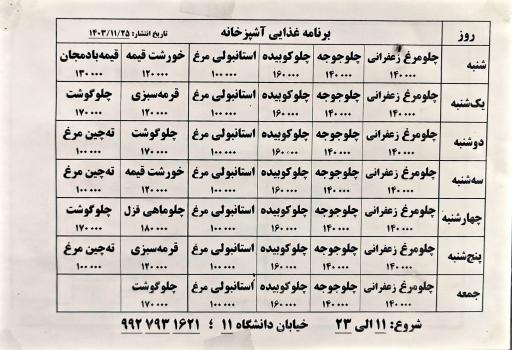 روز برنامه غذایی آشپزخانه تاریخ انتشار: ۱۴۰۳/۱۱/۲۵
شنبه چلومرغ زعفرانی چلوجوجه چلوکوبیده استانبولی مرغ خورشت قیمه قیمه‌بادمجان
۱۴۰۰۰۰ ۱۴۰۰۰۰ ۱۶۰۰۰۰ ۱۰۰۰۰۰ ۱۲۰۰۰۰ ۱۳۰۰۰۰
یک‌شنبه چلومرغ زعفرانی چلوجوجه چلوکوبیده استانبولی مرغ قرمه‌سبزی چلوگوشت
۱۴۰۰۰۰ ۱۴۰۰۰۰ ۱۶۰۰۰۰ ۱۰۰۰۰۰ ۱۲۰۰۰۰ ۱۷۰۰۰۰
دوشنبه چلومرغ زعفرانی چلوجوجه چلوکوبیده استانبولی مرغ چلوگوشت ته‌چین مرغ
۱۴۰۰۰۰ ۱۴۰۰۰۰ ۱۶۰۰۰۰ ۱۰۰۰۰۰ ۱۷۰۰۰۰ ۱۰۰۰۰۰
سه‌شنبه چلومرغ زعفرانی چلوجوجه چلوکوبیده استانبولی مرغ خورشت قیمه ته‌چین مرغ
۱۴۰۰۰۰ ۱۴۰۰۰۰ ۱۶۰۰۰۰ ۱۰۰۰۰۰ ۱۲۰۰۰۰ ۱۰۰۰۰۰
چهارشنبه چلومرغ زعفرانی چلوجوجه چلوکوبیده استانبولی مرغ چلوماهی قزل چلوگوشت
۱۴۰۰۰۰ ۱۴۰۰۰۰ ۱۶۰۰۰۰ ۱۰۰۰۰۰ ۱۸۰۰۰۰ ۱۷۰۰۰۰
پنج‌شنبه چلومرغ زعفرانی چلوجوجه چلوکوبیده استانبولی مرغ قرمه‌سبزی ته‌چین مرغ
۱۴۰۰۰۰ ۱۴۰۰۰۰ ۱۶۰۰۰۰ ۱۰۰۰۰۰ ۱۲۰۰۰۰ ۱۰۰۰۰۰
جمعه چلومرغ زعفرانی چلوجوجه چلوکوبیده استانبولی مرغ چلوگوشت
۱۴۰۰۰۰ ۱۴۰۰۰۰ ۱۶۰۰۰۰ ۱۰۰۰۰۰ ۱۷۰۰۰۰
شروع: ۱۱ الی ۲۳ خیابان دانشگاه ۱۱ ؛ ۱۶۲۱ ۷۹۳ ۹۹۲